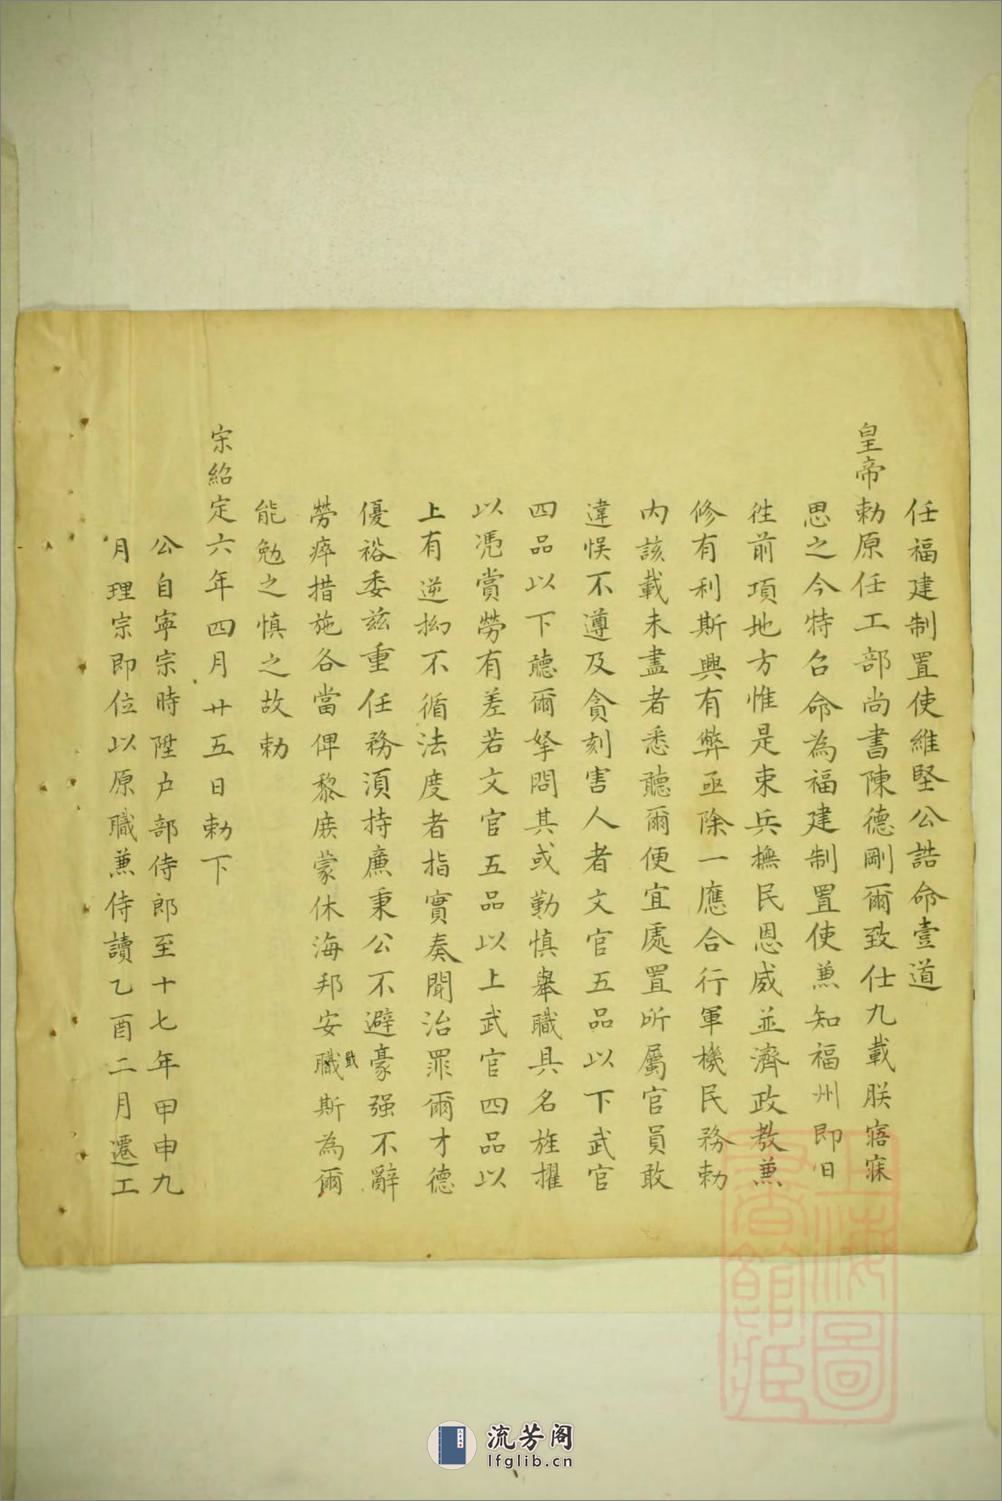 任福建制置使維堅公誥命壹道
皇帝勅原任工部尚書陳德剛爾致仕九載朕寤寐
思之今特召命為福建制置使兼知福州即日
徃前項地方惟是束兵撫民恩威並濟政教兼
修有利斯興有弊亟除一應合行軍機民務勅
內該載未盡者悉聽爾便宜處置所屬官員敢
違悮不遵及貪刻害人者文官五品以下武官
四品以下聽爾拏問其或勤慎舉職具名旌擢
以凴賞勞有差若文官五品以上武官四品以
上有逆拗不循法度者指實奏聞治罪爾才德
優裕委兹重任務須持廉秉公不避豪强不辭
勞瘁措施各當俾黎庶蒙休海邦安職斯為爾
能勉之慎之故勅
宋紹定六年四月廿五日勅下
公自寧宗時陞户部侍郎至十七年甲申九
月理宗即位以原職兼侍讀乙酉二月遷工
上海圖
書館藏
流芳阁
lfglib.cn